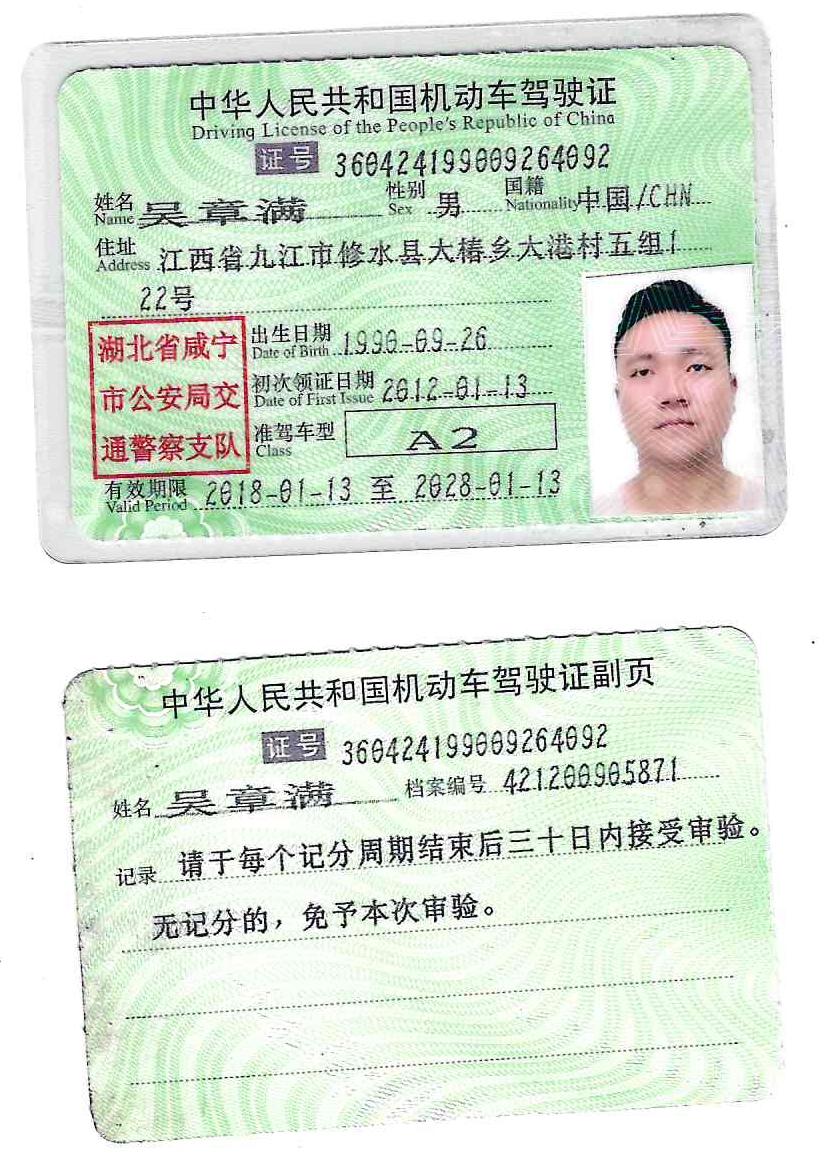 中华人民共和国机动车驾驶证
Driving License of the People's Republic of China
证号 360424199009264092
姓名 吴章满 性别 男 国籍 中国/CHN
Name Sex Nationality
住址 江西省九江市修水县大椿乡大港村五组1
Address
22号
湖北省咸宁
市公安局交
通警察支队
出生日期 1990-09-26
Date of Birth
初次领证日期 2012-01-13
Date of First Issue
准驾车型 A2
Class
有效期限 2018-01-13 至 2028-01-13
Valid Period
中华人民共和国机动车驾驶证副页
证号 360424199009264092
姓名 吴章满 档案编号 421200905871
记录 请于每个记分周期结束后三十日内接受审验。
无记分的，免予本次审验。